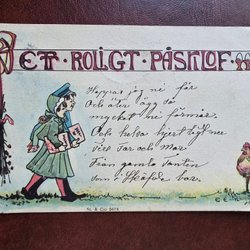 ETT ROLIGT PÅSKLOF
Hoppas jag ni får
Och äter ägg så
mycket ni förmår.
Och helsa hjertligt
Till Far och Mor
Från gamla Tanten
Som i Sköfde bor.